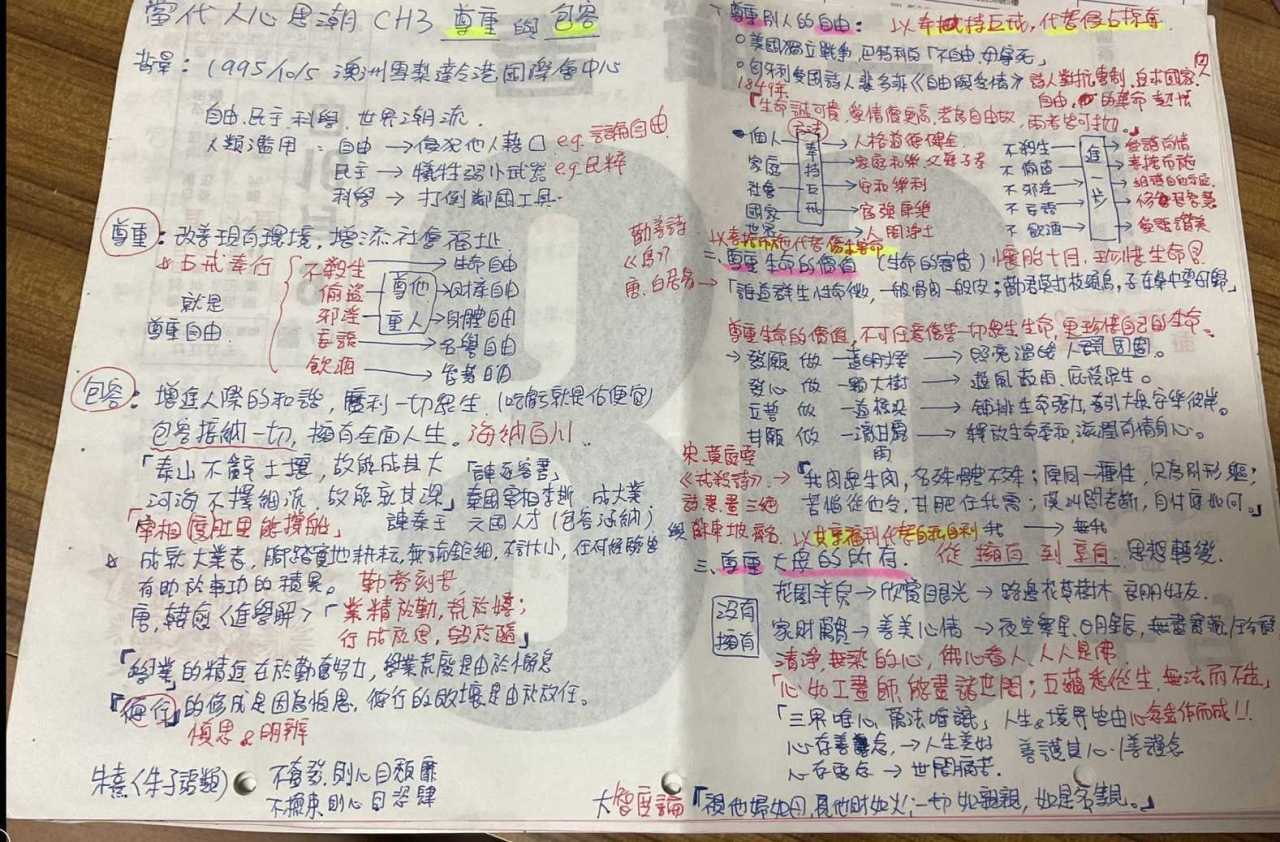 當代人心思潮 CH3 尊重的包容
背景：1995/10/5 澳洲雪梨達令港國際會中心
自由.民主.科學.世界潮流.
人類濫用：自由→侵犯他人藉口 e.g.言論自由
民主→犧牲弱小武器 e.g.民粹
科學→打倒鄰國工具.
尊重：改善現有環境，增添社會福祉
五戒奉行
就是
尊重自由
不殺生→生命自由
偷盜→財產自由
邪淫→身體自由
妄語→名譽自由
飲酒→智慧自由
尊他
重人
包容：增進人際的和諧，廣利一切眾生.(吃虧就是佔便宜)
包容接納一切，擁有全面人生。海納百川.
「泰山不辭土壤，故能成其大
河海不擇細流.故能就其深」
「諫逐客書」
秦國宰相李斯.成大業
諫秦王 六國人才(包容涵納)
「宰相度肚里能撐船」
成就大業者，腳踏實地耕耘，無論鉅細，不計大小，任何經驗皆
有助於事功的積累。 勤勞刻苦
唐，韓愈〈進學解〉「業精於勤，荒於嬉；
行成於思，毀於隨」
「學業」的精進在於勤奮努力，學業荒廢是由於懈怠
『德行』的修成是因為慎思，德行的敗壞是由於放任。
慎思&明辨
朱熹〈朱子語類〉 不奮發，則心日頹靡
不檢束則心日恣肆
一、尊重別人的自由：以奉戒持五戒，代替侵占掠奪
○美國獨立戰爭，巴特利肯「不自由，毋寧死」
○匈牙利愛國詩人裴多菲《自由與愛情》詩人對抗專制、追求國家
1849年
自由，的革命
「生命誠可貴，愛情價更高，若為自由故，兩者皆可拋。」
個人→人格道德健全
家庭→家庭和樂父慈子孝
社會→安和樂利
國家→富強康樂
世界→人間淨土
奉持五戒
不殺生
不偷盜
不邪淫
不妄語
不飲酒
進一步
愛護有情
喜捨布施
修智慧
愛語讚美
二、尊重生命的價值 (生命的寶貴) 懷胎十月，珍惜生命!
勸善詩
《鳥》
唐，白居易→「誰道群生性命微，一般骨肉一般皮；勸君莫打枝頭鳥，子在巢中望母歸」
尊重生命的價值，不可任意傷害一切眾生生命，更珍惜自己的生命。
→發願 做 一道明燈→照亮溫暖人群周圍。
發心 做 一顆大樹→遮風蔽雨.庇蔭眾生。
立誓 做 一道橋梁→鋪排生命張力，牽引大眾安樂彼岸。
甘願 做 一滴甘露→釋放生命垂亟，滋潤有情身心。
宋.黃庭堅
《戒殺詩》→「我肉眾生肉，名殊體不殊；原同一種性，只為別形軀；
苦惱從他受，甘肥任我需；莫叫閻老斷，自付應如何。」
詩.書.畫三絕
與蘇東坡齊名
以共享福利代替自私自利 我→無我
三、尊重大眾的所有. 從擁有到享有 思想轉變.
沒有
擁有
花園洋房→欣賞眼光→路邊花草樹木.良朋好友.
家財萬貫→善美心情→夜空繁星、日月星辰，無盡寶藏
清淨無染的心，佛心看人.人人是佛
「心如工畫師，能畫諸世間；五蘊悉從生，無法而不造」
「三界唯心，萬法唯識」人生&境界皆由心念造作而成!!
心存善念，→人生美好 善護其心、善護念
心存惡念→世間痛苦.
大智度論「視他婦如母，見他財如火；一切如親親，如是